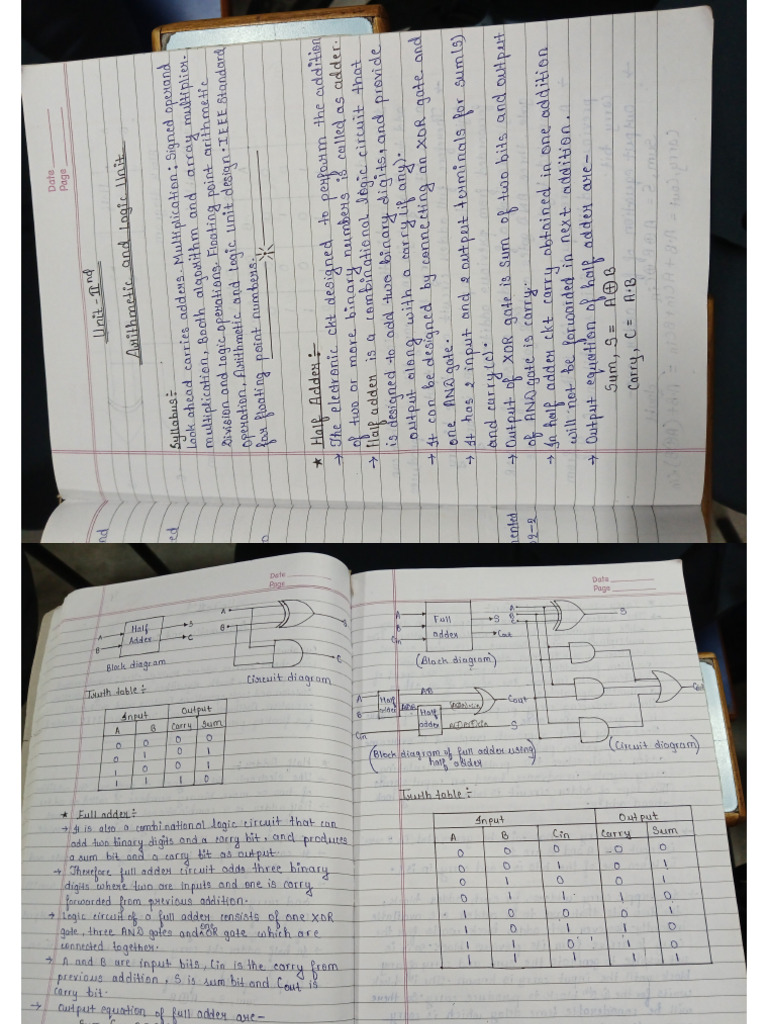 Date
Page
Unit-IInd
Arithmetic and Logic Unit
Syllabus:-
Look ahead carries adders. Multiplication: Signed operand
multiplication, Booth algorithm and array multiplier.
Division and logic operations. Floating point arithmetic
operation, Arithmetic and logic unit design. IEEE Standard
for floating point numbers.
★ Half Adder:-
→ The electronic ckt designed to perform the addition
of two or more binary numbers is called as adder.
→ Half adder is a combinational logic circuit that
is designed to add two binary digits, and provide
output along with a carry (if any).
→ It can be designed by connecting an XOR gate and
one AND gate.
→ It has 2 input and 2 output terminals for sum(s)
and carry(c).
→ Output of XOR gate is sum of two bits and output
of AND gate is carry.
→ In half adder ckt carry obtained in one addition
will not be forwarded in next addition.
→ Output equation of half adder are-
Sum, S = A⊕B
Carry, C = A·B
Date
Page
A
B
Half
Adder
S
C
Block diagram
A
B
S
C
Circuit diagram
Truth table:-
Input Output
A B Carry Sum
0 0 0 0
0 1 0 1
1 0 0 1
1 1 1 0
★ Full adder:-
→ It is also a combinational logic circuit that can
add two binary digits and a carry bit, and produces
a sum bit and a carry bit as output.
→ Therefore full adder circuit adds three binary
digits where two are inputs and one is carry
forwarded from previous addition.
→ Logic circuit of a full adder consists of one XOR
gate, three AND gates and one OR gate which are
connected together.
→ A and B are input bits, Cin is the carry from
previous addition, S is sum bit and Cout is
carry bit.
→ output equation of full adder are-
Date
Page
A
B
Cin
Full
adder
S
Cout
(Block diagram)
A
B
Cin
Half
adder
AB
A⊕B
Half
adder
Cout
S
(Block diagram of full adder using
half adder)
S
Cout
(Circuit diagram)
Truth table:-
Input Output
A B Cin Carry Sum
0 0 0 0 0
0 0 1 0 1
0 1 0 0 1
0 1 1 1 0
1 0 0 0 1
1 0 1 1 0
1 1 0 1 0
1 1 1 1 1